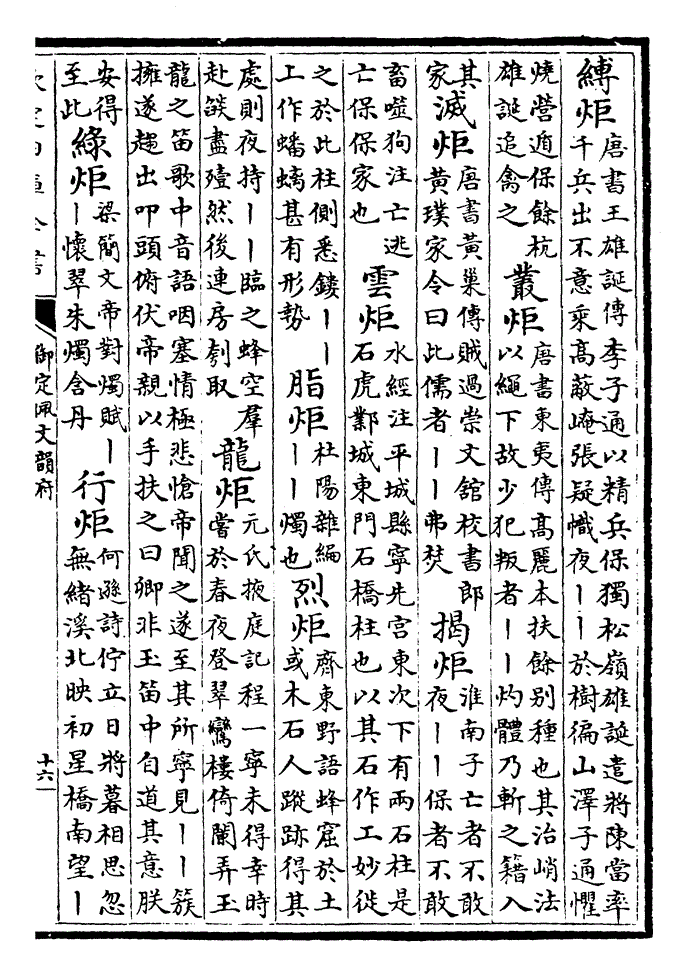 縛炬唐書王雄誕傳李子通以精兵保獨松嶺雄誕遣將陳當率
千兵出不意乘高蔽崦張疑幟夜丨丨於樹徧山澤子通懼
燒營遁保餘杭
雄誕追禽之
叢炬唐書東夷傳高麗本扶餘别種也其治峭法
以繩下故少犯叛者丨丨灼體乃斬之籍入
其
家
滅炬唐書黄巢傳賊過崇文館校書郎
黄璞家令曰此儒者丨丨弗焚
揭炬淮南子亡者不敢
夜丨丨保者不敢
畜噬狗注亡逃
亡保保家也
雲炬水經注平城縣寧先宮東次下有兩石柱是
石虎鄴城東門石橋柱也以其石作工妙徙
之於此柱側悉鏤丨丨
工作蟠螭甚有形勢
脂炬杜陽雜編
丨丨燭也
烈炬齊東野語蜂窟於土
或木石人蹤跡得其
處則夜持丨丨臨之蜂空羣
赴燄盡殪然後連房刳取
龍炬元氏掖庭記程一寧未得幸時
嘗於春夜登翠鸞樓倚闌弄玉
龍之笛歌中音語咽塞情極悲愴帝聞之遂至其所寧見丨丨簇
擁遂趨出叩頭俯伏帝親以手扶之曰卿非玉笛中自道其意朕
安得
至此
綠炬梁簡文帝對燭賦丨
丨懷翠朱燭含丹
行炬何遜詩佇立日將暮相思忽
無緒溪北映初星橋南望丨
欽定四庫全書
御定佩文韻府
十六